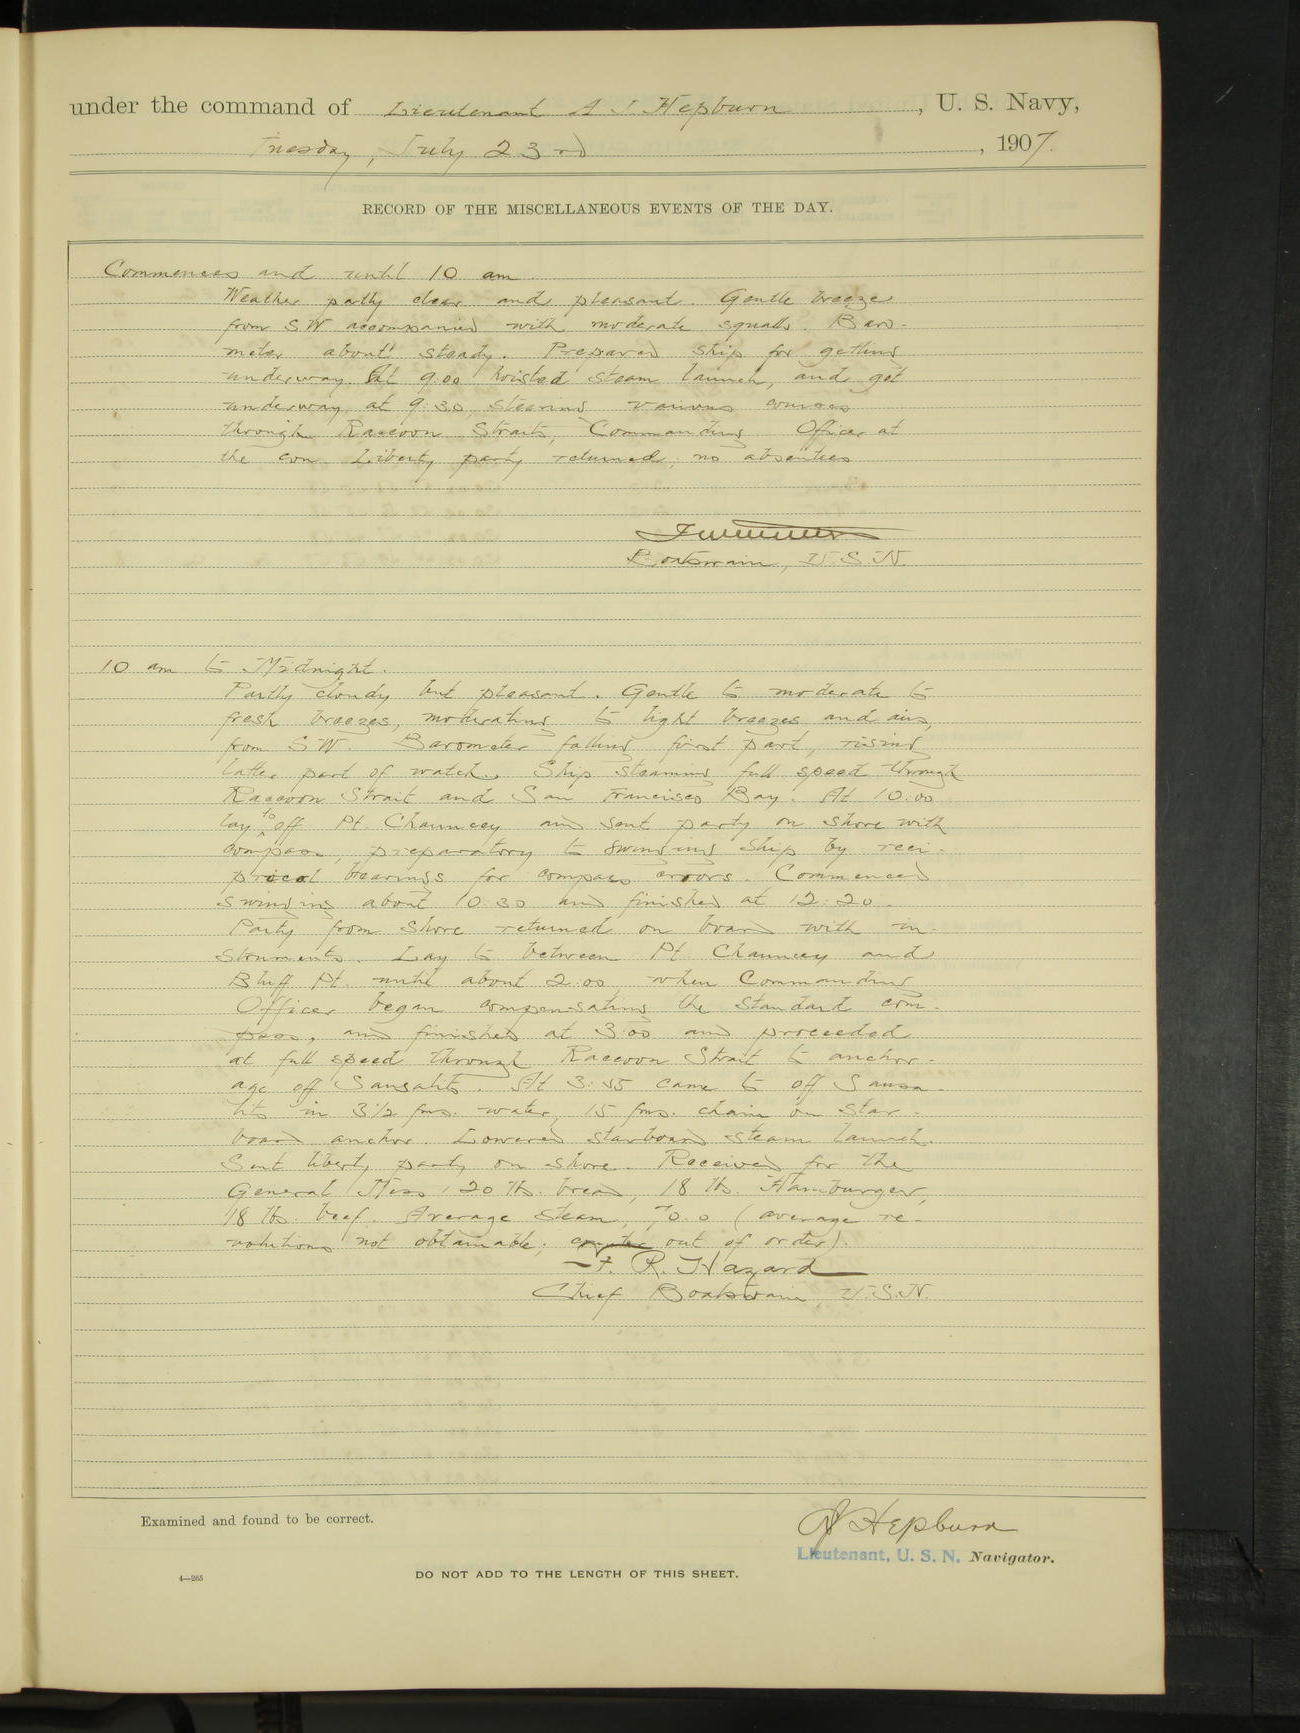 under the command of Lieutenant A J. Hepburn, U. S. Navy,
Tuesday, July 23rd, 1907.
RECORD OF THE MISCELLANEOUS EVENTS OF THE DAY.
Commences and until 10 am.
Weather patly clear and pleasant. Gentle breeze
from SW accompanied with moderate squalls. Baro-
meter about steady. Prepared ship for getting
underway. At 9:00 hoisted steam launch, and got
underway at 9:30, steering various courses
through Raccoon Straits, Commanding Officer at
the con. Liberty party returned; no absentees
Boatswain, U.S.N.
10 am to Midnight.
Partly cloudy but pleasant. Gentle to moderate to
fresh breezes, moderating to light breezes and airs,
from SW. Barometer falling first part, rising
latter part of watch. Ship steaming full speed through
Raccoon Strait and San Francisco Bay. At 10:00
lay to off Pt. Chauncey and sent party on shore with
compass, preparatory to swinging ship by reci-
procal bearings for compass errors. Commenced
swinging about 10:30 and finished at 12:20.
Party from shore returned on board with in-
struments. Lay to between Pt. Chauncey and
Bluff Pt. until about 2:00, when Commanding
Officer began compensating the standard com-
pass, and finished at 3:00 and proceeded
at full speed through Raccoon Strait to anchor-
age off Sausalito. At 3:55 came to off Sausa-
lito in 3½ fms. water, 15 fms. chain on star-
board anchor. Lowered starboard steam launch.
Sent liberty party on shore. Received for the
General Mess 120 lbs. bread, 18 lbs. Hamburger,
18 lbs. beef. Average steam, 70.0 (average re-
volutions not obtainable; counter out of order).
F. R. Hazard
Chief Boatswain, U.S.N.
Examined and found to be correct.
AJ Hepburn
Lieutenant, U. S. N. Navigator.
4—265
DO NOT ADD TO THE LENGTH OF THIS SHEET.